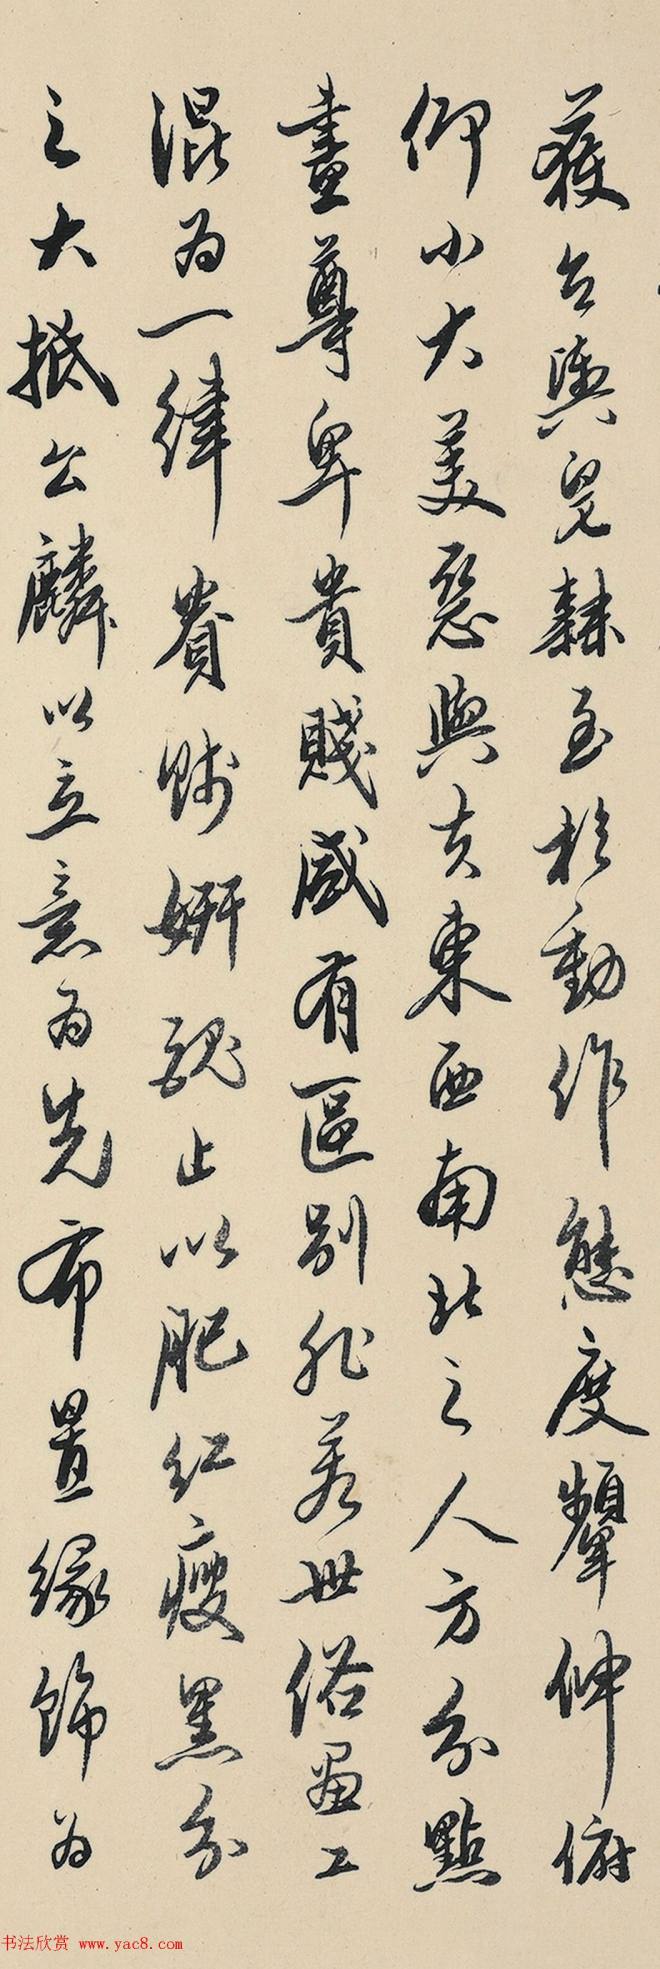 獲台輿皂隸至於動作態度顰伸俯
仰小大美惡與夫東西南北之人方分點
畫尊卑貴賤咸有區別非若世俗畫工
混為一律貴賤妍醜止以肥紅瘦黑分
之大抵公麟以立意為先布置緣飾為
书法欣赏 www.yac8.com